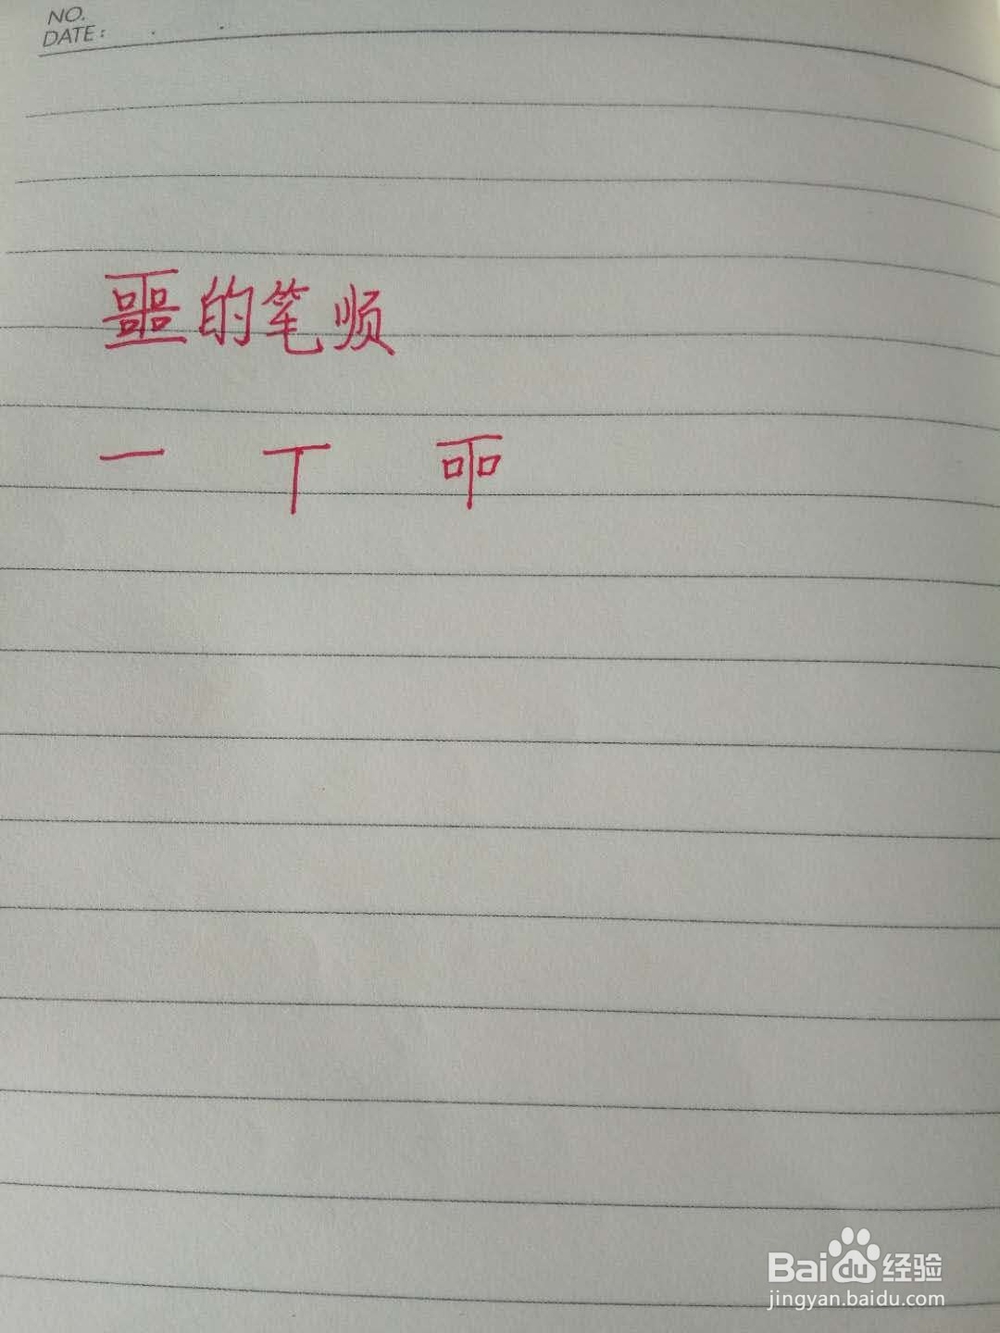 NO.
DATE:
噩的笔顺
一 丅 㗊
Baidu 经验
jingyan.baidu.com